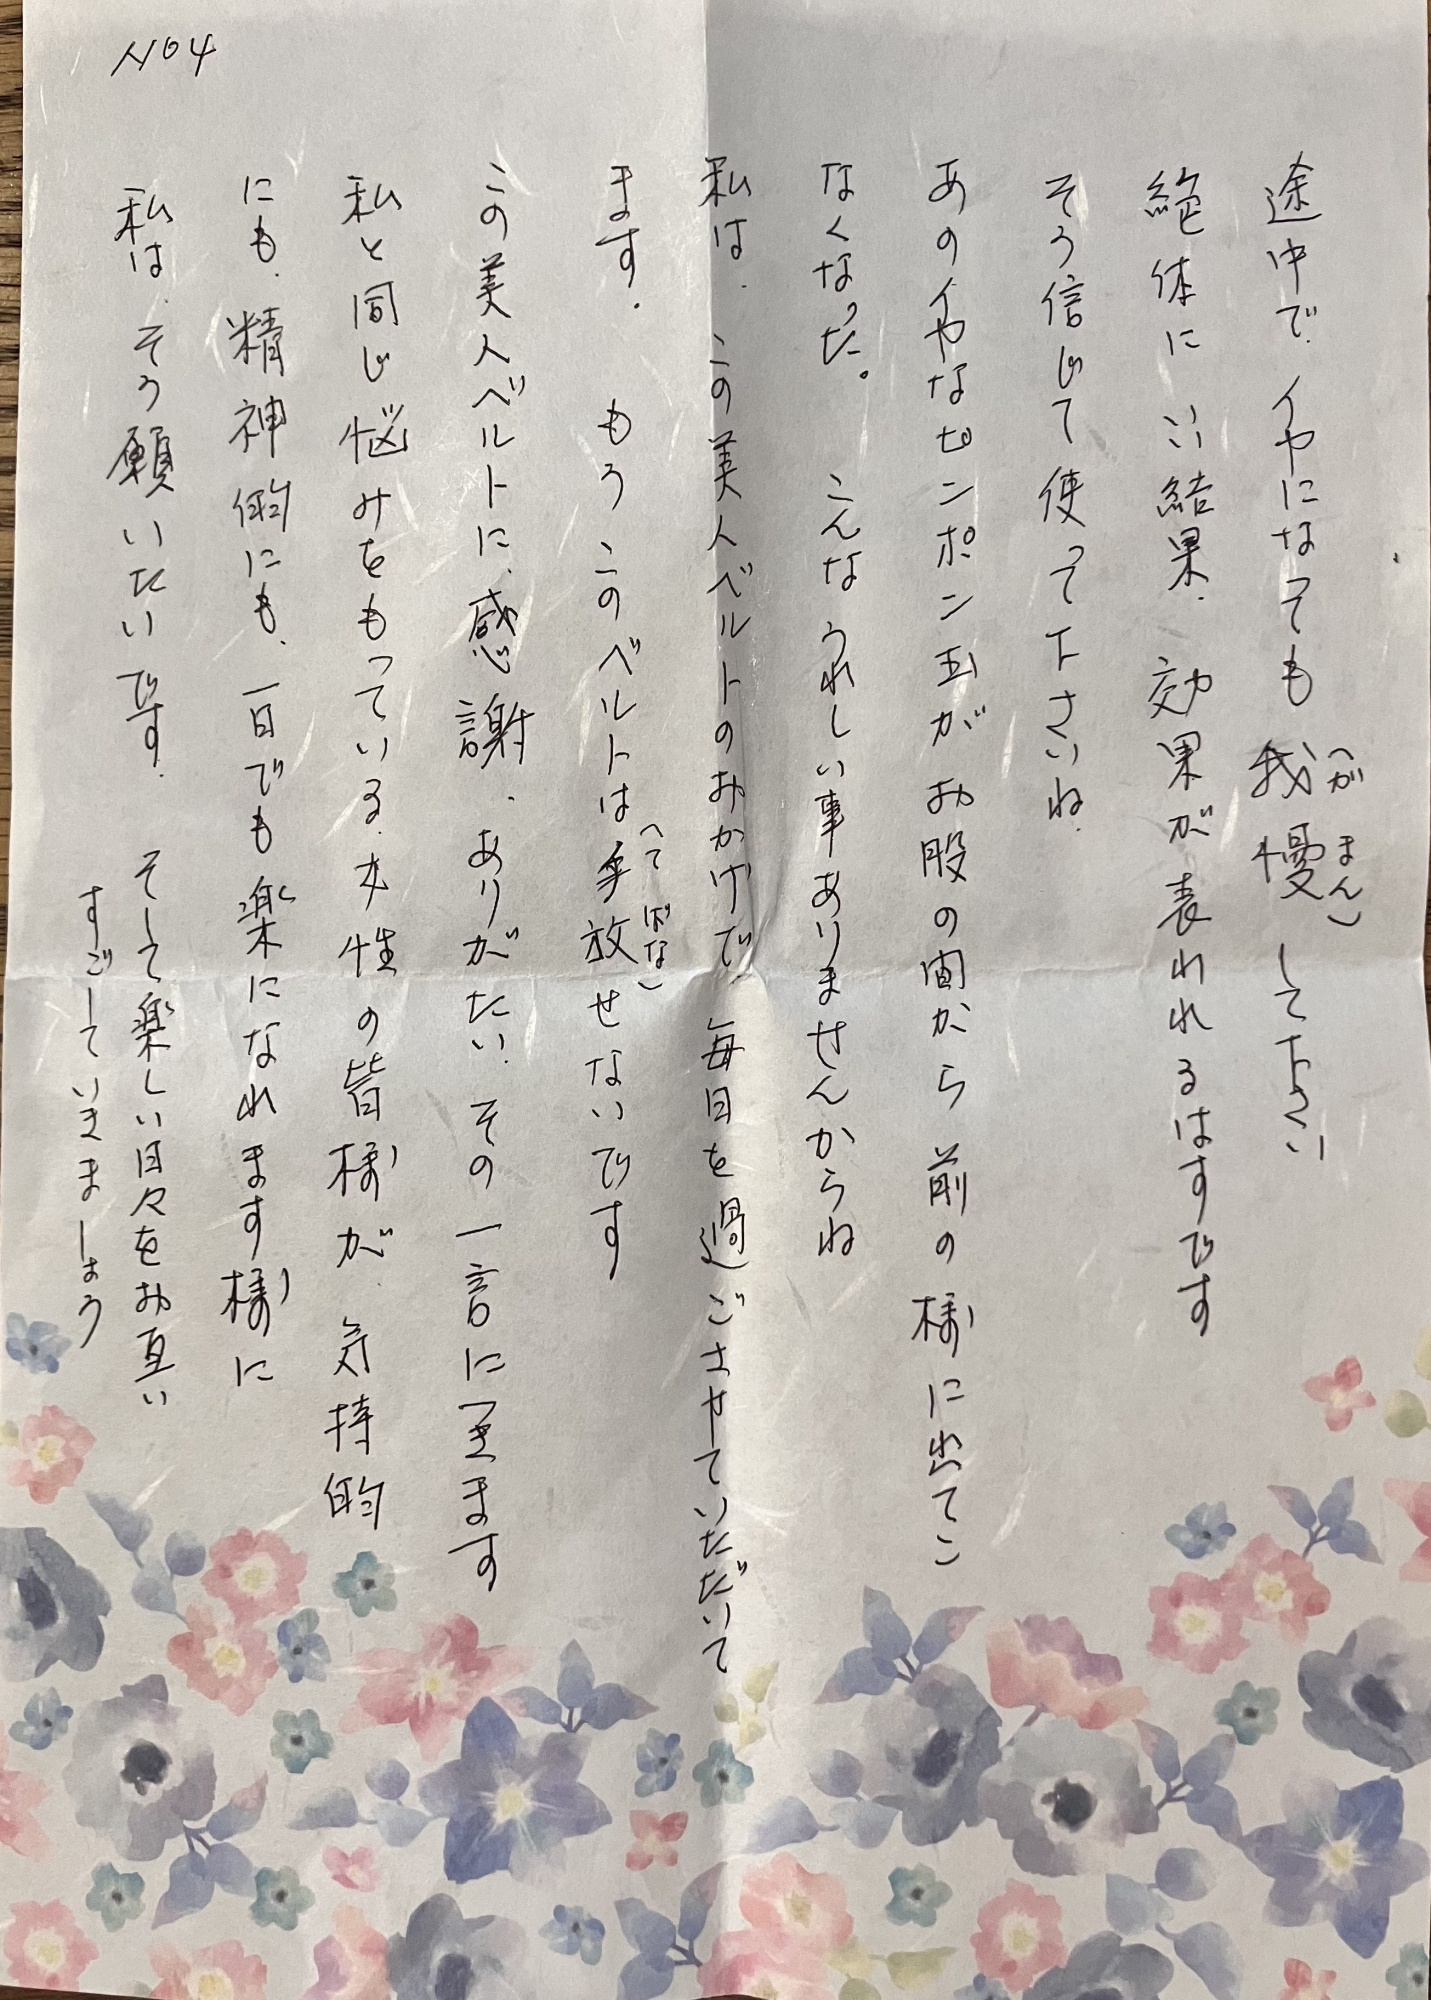 NO4
途中で、イヤになっても我慢(がまん)して下さい
絶体に いい結果、効果が表われるはずです
そう信じて使って下さいね、
あのイヤなピンポン玉が お股の間から 前の様に出てこ
なくなった。 こんな うれしい事ありませんからね
私は、この美人ベルトのおかげで、毎日を過ごさせていただいて
ます。 もうこのベルトは手放(てばな)せないです
この美人ベルトに、感謝、ありがたい、その一言につきます
私と同じ悩みをもっている、女性の皆様が、気持的
にも、精神的にも、一日でも楽になれます様に
私は、そう願いたいです、 そして楽しい日々をお互い
すごしていきましょう